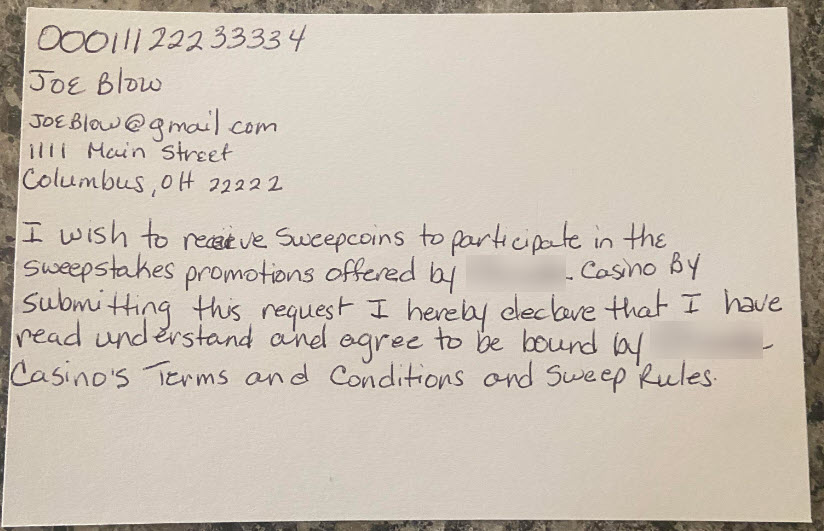 00011122233334
JOE Blow
JOEBlow@gmail.com
1111 Main Street
Columbus, OH 22222
I wish to receive Sweepcoins to participate in the
sweepstakes promotions offered by . Casino By
submitting this request I hereby declare that I have
read understand and agree to be bound by
Casino's Terms and Conditions and Sweep Rules.